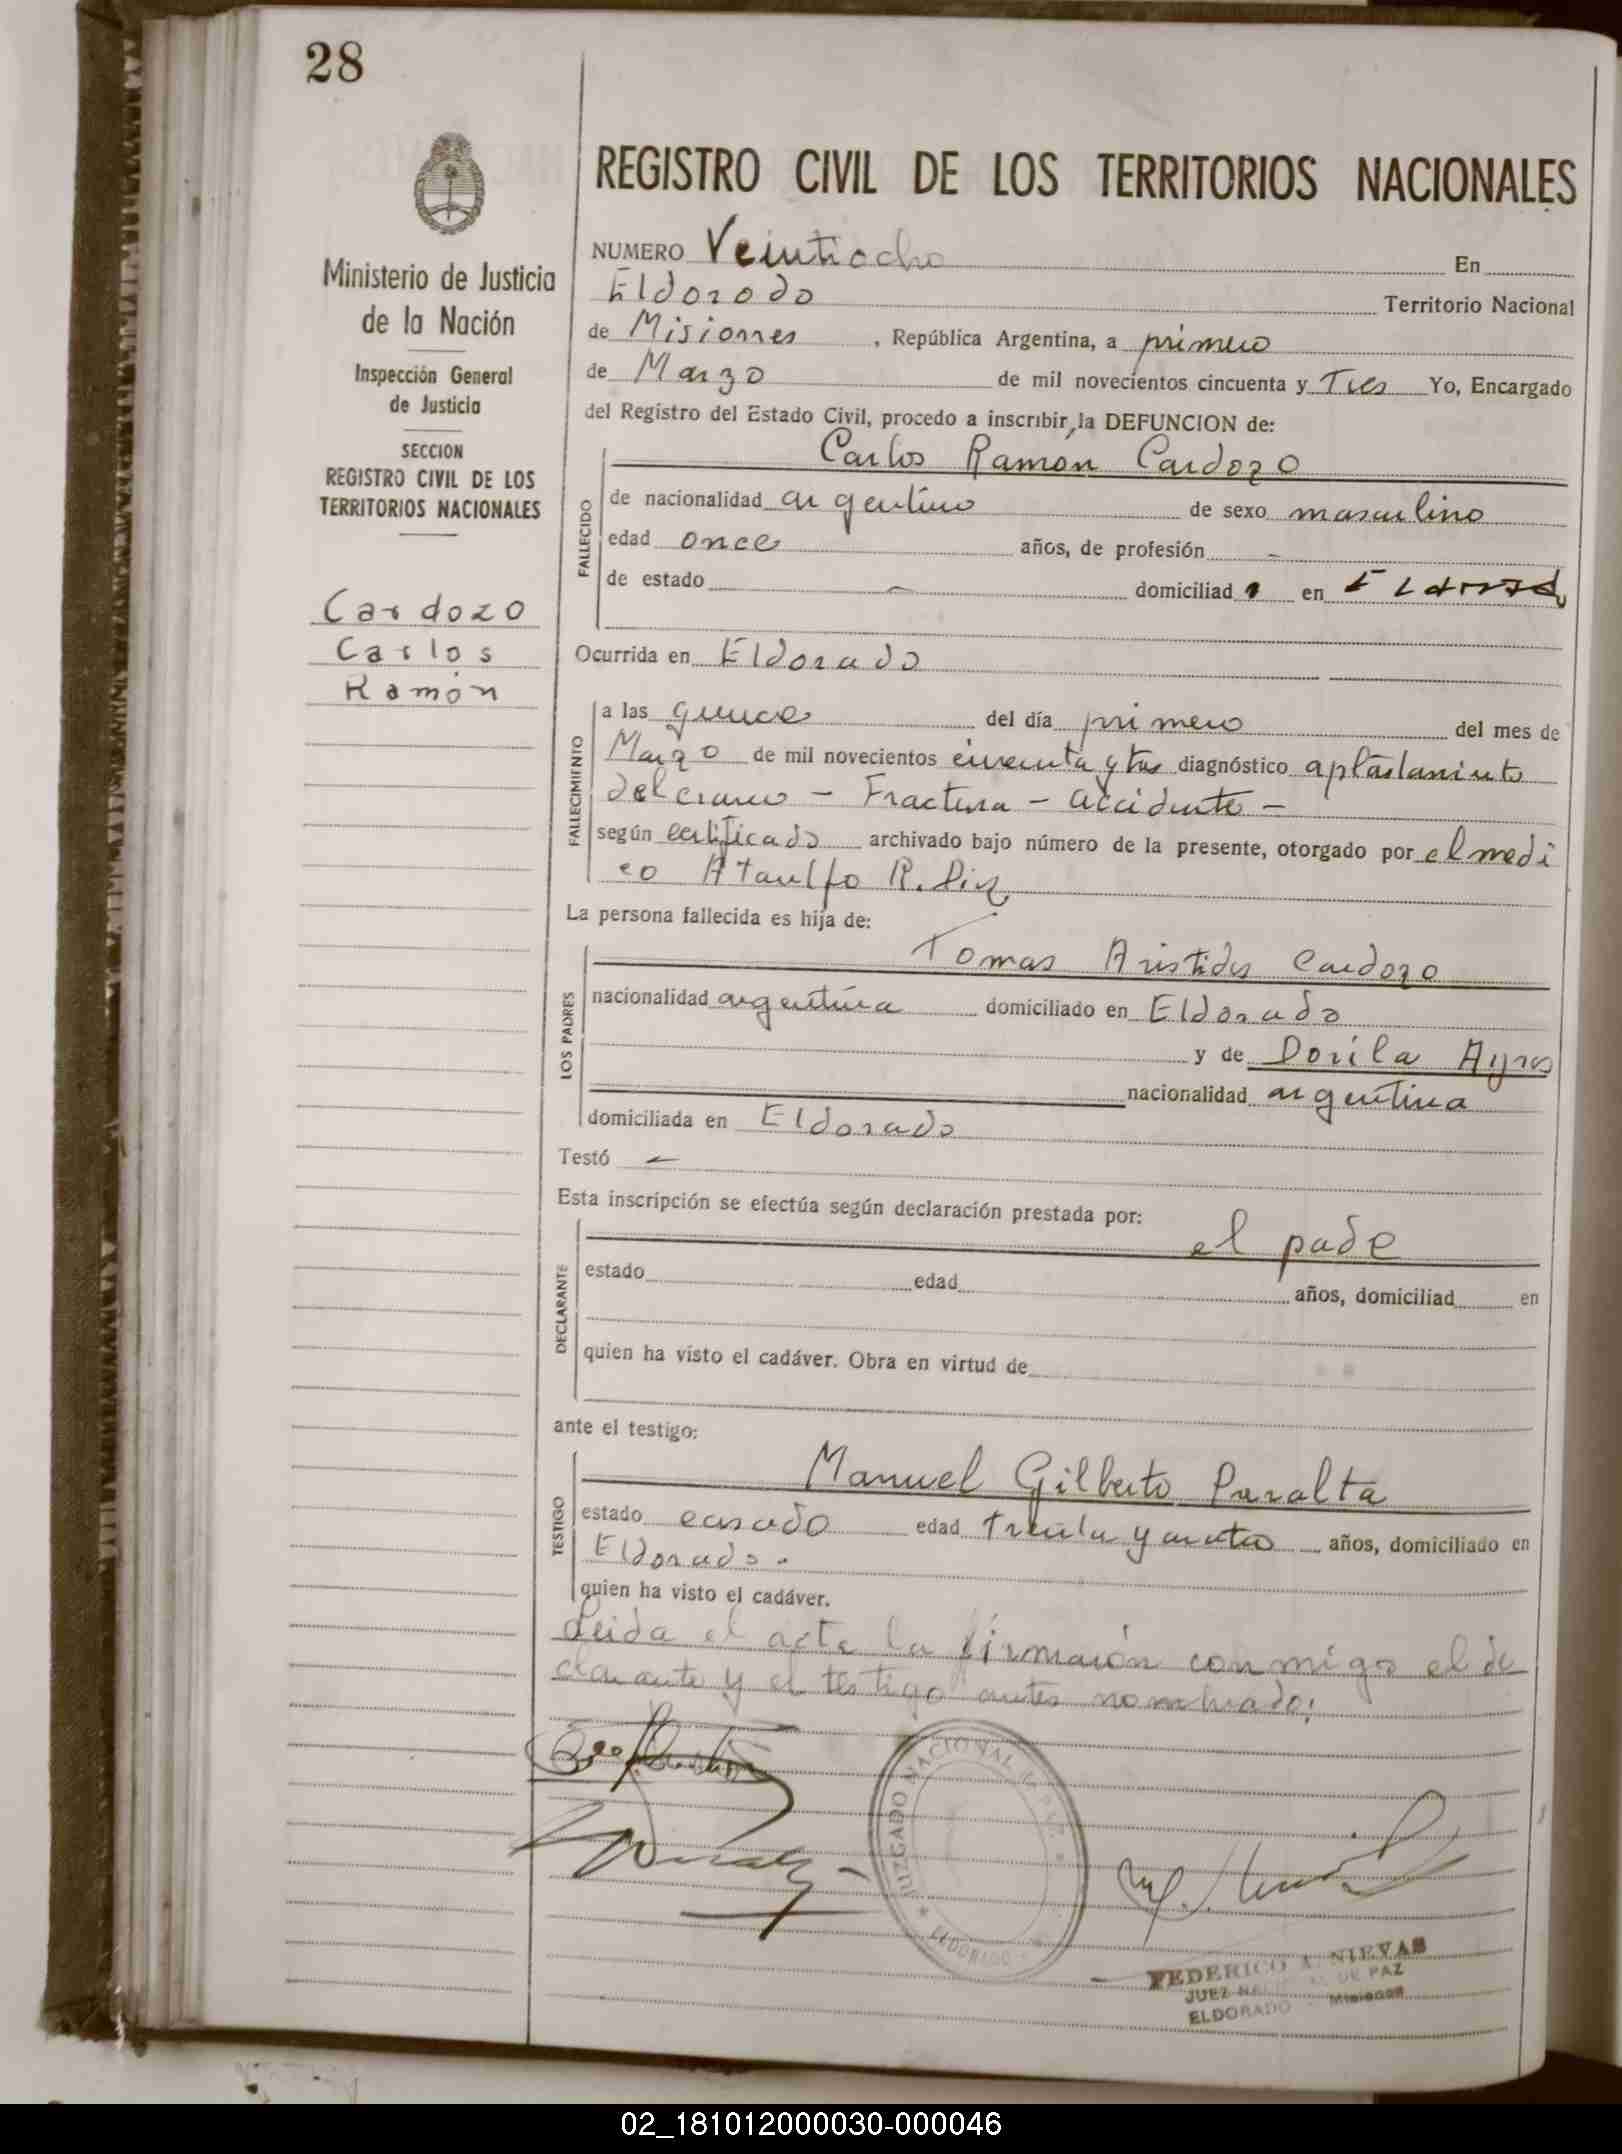 28
REGISTRO CIVIL DE LOS TERRITORIOS NACIONALES
Ministerio de Justicia
de la Nación
Inspección General
de Justicia
SECCION
REGISTRO CIVIL DE LOS
TERRITORIOS NACIONALES
Cardozo
Carlos
Ramón
NUMERO Veintiocho En
Eldorodo Territorio Nacional
de Misiones , República Argentina, a primero
de Marzo de mil novecientos cincuenta y Tres Yo, Encargado
del Registro del Estado Civil, procedo a inscribir la DEFUNCION de:
Carlos Ramón Cardozo
FALLECIDO
de nacionalidad argentino de sexo masculino
edad once años, de profesión -
de estado - domiciliad o en Eldorado
Ocurrida en Eldorado
FALLECIMIENTO
a las quince del día primero del mes de
Marzo de mil novecientos cincuenta y tres diagnóstico aplastamiento
del craneo - Fractura - accidente -
según certificado archivado bajo número de la presente, otorgado por el medi
co Ataulfo R.
La persona fallecida es hija de:
LOS PADRES
Tomas Aristides Cardozo
nacionalidad argentina domiciliado en Eldorado
y de Dorila Ayres
nacionalidad argentina
domiciliada en Eldorado
Testó -
Esta inscripción se efectúa según declaración prestada por:
DECLARANTE
el padre
estado edad años, domiciliad en
quien ha visto el cadáver. Obra en virtud de
ante el testigo:
TESTIGO
Manuel Gilberto Peralta
estado casado edad treinta y cuatro años, domiciliado en
Eldorado.
quien ha visto el cadáver.
Leida el acta la firmarón conmigo el de
clarante y el testigo antes nombrado;
JUZGADO NACIONAL DE PAZ
ELDORADO
FEDERICO A. NIEVAS
JUEZ NACIONAL DE PAZ
ELDORADO - Misiones
02_181012000030-000046